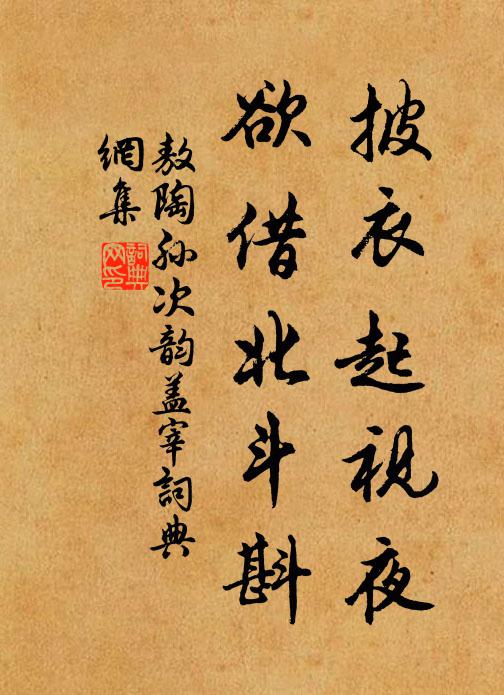 披衣起視夜
欲借北斗斟
敖陶孙次韵盖宰詞典
網集
詞典
网印